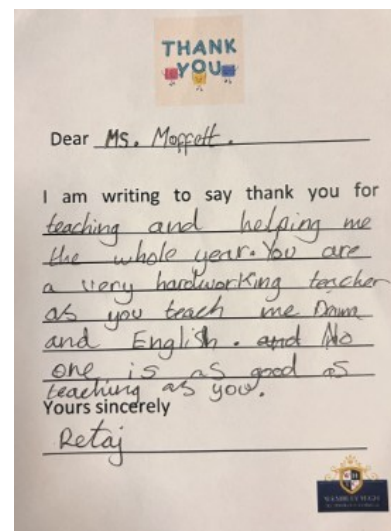 THANK
YOU
Dear Ms. Moffett.
I am writing to say thank you for
teaching and helping me
the whole year. You are
a very hardworking teacher
as you teach me Drama
and English. and No
one is as good as
teaching as you.
Yours sincerely
Retaj